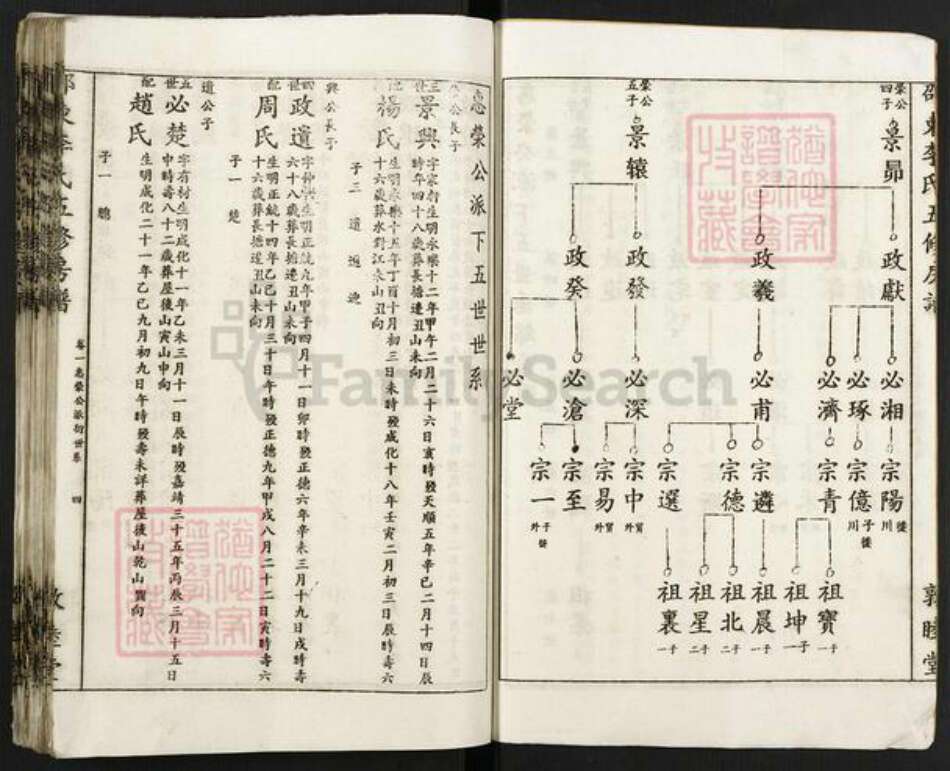 邵東李氏五修房譜
敦睦堂
榮公四子
景昴
榮公五子
景轅
政獻
政羲
政發
政癸
必湘
必琢
必濟
必甫
必深
必滄
必堂
宗陽
宗億
宗青
宗遴
宗德
宗選
宗中
宗易
宗至
宗一
祖寶
祖坤
祖晨
祖北
祖星
祖襄
子一
子一
子一
子二
子二
子一
惠榮公派下五世世系
公長子
三世
景興
字家衍生明永樂十二年甲午二月二十六日亥時歿天順五年辛巳二月十四日辰
時年四十八歲葬長塘連丑山未向
配
楊氏
生明永樂十五年丁酉十月初三日未時歿成化十八年壬寅二月初三日辰時壽六
十六歲葬水對江未山丑向
子三
興公長子
四世
政道
字仲興生明正統九年甲子四月十一日卯時歿正德六年辛未三月十九日戌時壽
六十八歲葬長塘連丑山未向
配
周氏
生明正統十四年乙巳十月三十日午時歿正德九年甲戌八月二十二日寅時壽六
十六歲葬長塘連丑山未向
子一 楚
道公子
五世
必楚
字有材生明成化十一年乙未三月十一日辰時歿嘉靖三十五年丙辰三月十五日
申時壽八十二歲葬屋後山寅山申向
配
趙氏
生明成化二十一年乙巳九月初九日午時歿壽未詳葬屋後山乾山巽向
子一 聰
卷一惠榮公派衍世系 四
FamilySearch